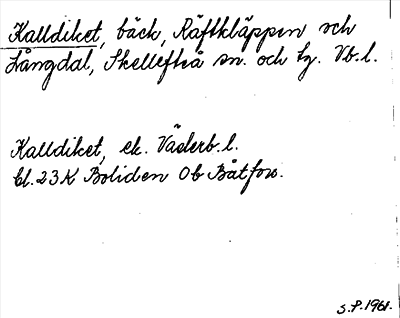 Kalldiket, bäck, Räftkläppen och
Långdal, Skellefteå sn. och tg. Vb.l.
Kalldiket, ek. Västerb.l.
bl. 23K Boliden Ob Båtfors.
S.P. 1961.